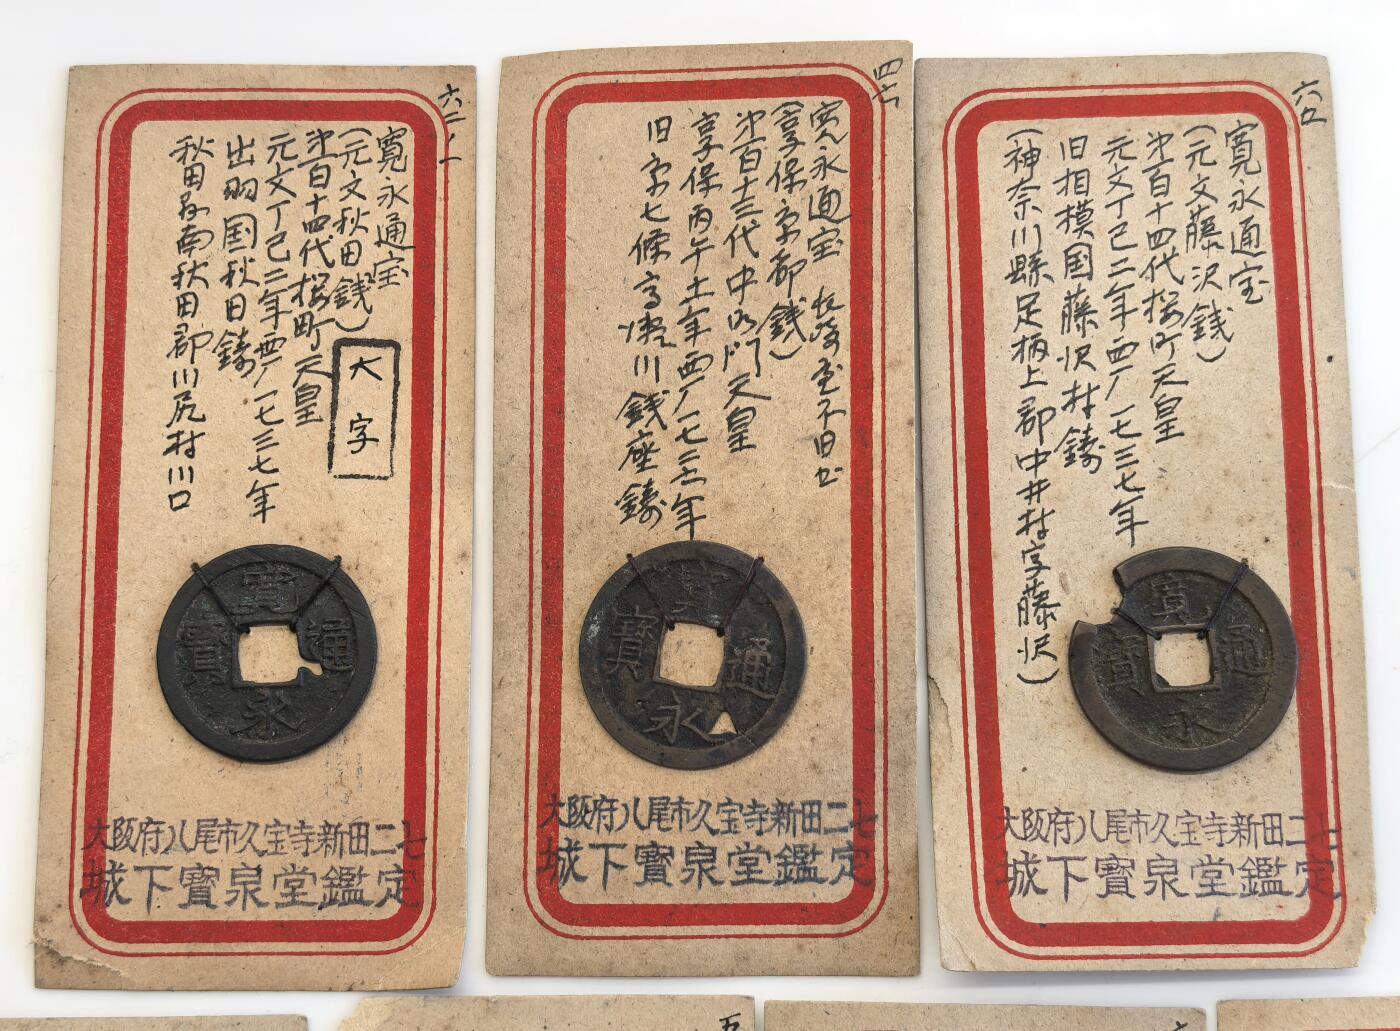 六二ノ一
寛永通宝
(元文秋田銭)
大字
第百十四代桜町天皇
元文丁巳二年西厂一七三七年
出羽国秋田鋳
秋田县南秋田郡川尻村川口
寛永通寳
大阪府八尾市久宝寺新田二七
城下寳泉堂鑑定
四七
寛永通宝
(享保京都銭)
第百十三代中御門天皇
享保丙午十一年西厂一七二六年
旧京七條高瀬川銭座鋳
寛永通寳
大阪府八尾市久宝寺新田二七
城下寳泉堂鑑定
六五
寛永通宝
(元文藤沢銭)
第百十四代桜町天皇
元文丁巳二年西厂一七三七年
旧相模国藤沢村鋳
(神奈川縣足柄上郡中井村字藤沢)
寛永通寳
大阪府八尾市久宝寺新田二七
城下寳泉堂鑑定
五
六